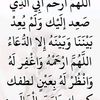 اللَّهُمَّ ارْحَمْ أَبِي الَّذِي
صَعِدَ إِلَيْكَ وَلَمْ يَعُدْ
بَيْنَنَا وَبَيْنَهُ إِلَّا الدُّعَاءُ
اللَّهُمَّ ارْحَمْهُ وَاغْفِرْ لَهُ
وَانْظُرْ لَهُ بِعَيْنِ لُطفك